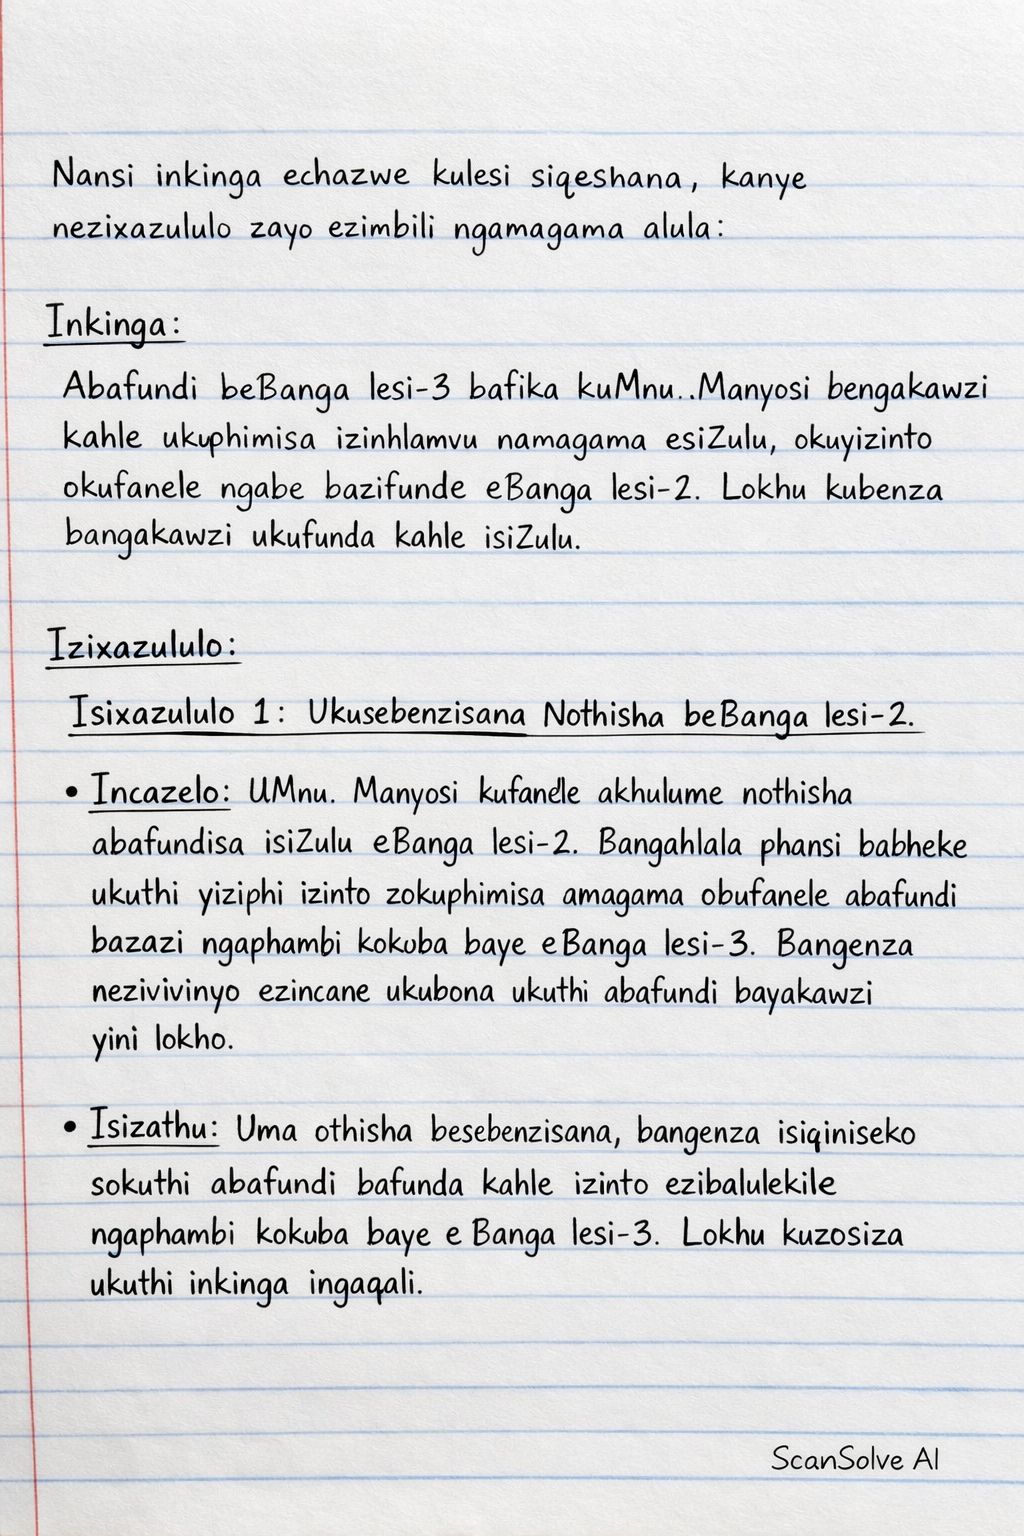 Nansi inkinga echazwe kulesi siqeshana, kanye
nezixazululo zayo ezimbili ngamagama alula:
Inkinga:
Abafundi beBanga lesi-3 bafika kuMnu..Manyosi bengakawzi
kahle ukuphimisa izinhlamvu namagama esiZulu, okuyizinto
okufanele ngabe bazifunde eBanga lesi-2. Lokhu kubenza
bangakawzi ukufunda kahle isiZulu.
Izixazululo:
Isixazululo 1: Ukusebenzisana Nothisha beBanga lesi-2.
• Incazelo: UMnu. Manyosi kufanele akhulume nothisha
abafundisa isiZulu eBanga lesi-2. Bangahlala phansi babheke
ukuthi yiziphi izinto zokuphimisa amagama obufanele abafundi
bazazi ngaphambi kokuba baye eBanga lesi-3. Bangenza
nezivivinyo ezincane ukubona ukuthi abafundi bayakawzi
yini lokho.
• Isizathu: Uma othisha besebenzisana, bangenza isiqiniseko
sokuthi abafundi bafunda kahle izinto ezibalulekile
ngaphambi kokuba baye e Banga lesi-3. Lokhu kuzosiza
ukuthi inkinga ingaqali.
ScanSolve AI